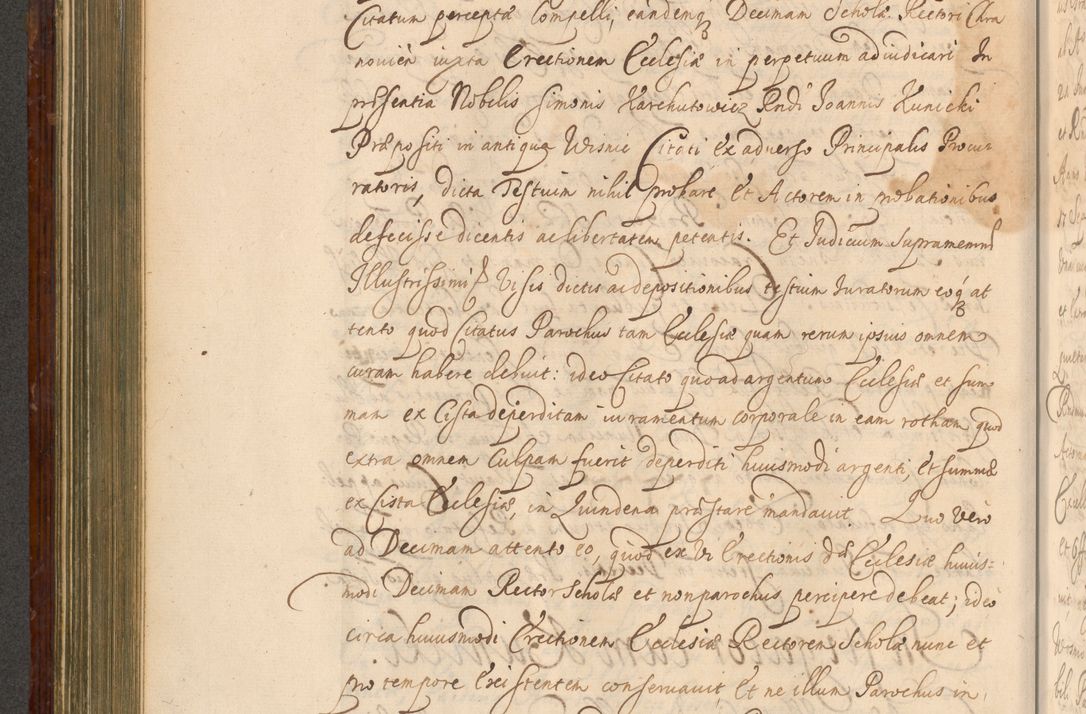 Citatum perceptã Compelli, eandemq Decimam Scholæ Rectori Chra
novien iuxta Erectionem Ecclesiæ in perpetuum adiudicari In
præsentia Nobilis Simonis Karchutowicz Rndi Joannis Kunicki
Præpositi in antiqua Wisnic Citati Ex adverso Principalis Procu
ratoris, dicta Testium nihil probare Et Actorem in probationibus
defecisse dicentis ac libertatem petentis. Et Judicium Supramemni
Illustrissimi Visis dictis ac depositionibus testium Juratorum eoq at
tento quod Citatus Parochus tam Ecclesiæ quam rerum ipsius omnem
curam habere debuit: ideo Citato quo ad argentum Ecclesiæ et sum
mam ex Cista deperditam iuramentum corporale in eam rotham quod
extra omnem Culpam fuerit deperditi huiusmodi argenti, Et summæ
ex Cista Ecclesiæ, in Quindena præstare mandavit. Quo Vero
ad Decimam attento eo, quod ex Vi Erectionis dæ Ecclesiæ huius-
modi Decimam Rector Scholæ et non parochus percipere debeat; ideo
circa huiusmodi Erectionem Ecclesiæ Rectorem Scholæ nunc et
pro tempore Existentem conservavit, Et ne illum Parochus in